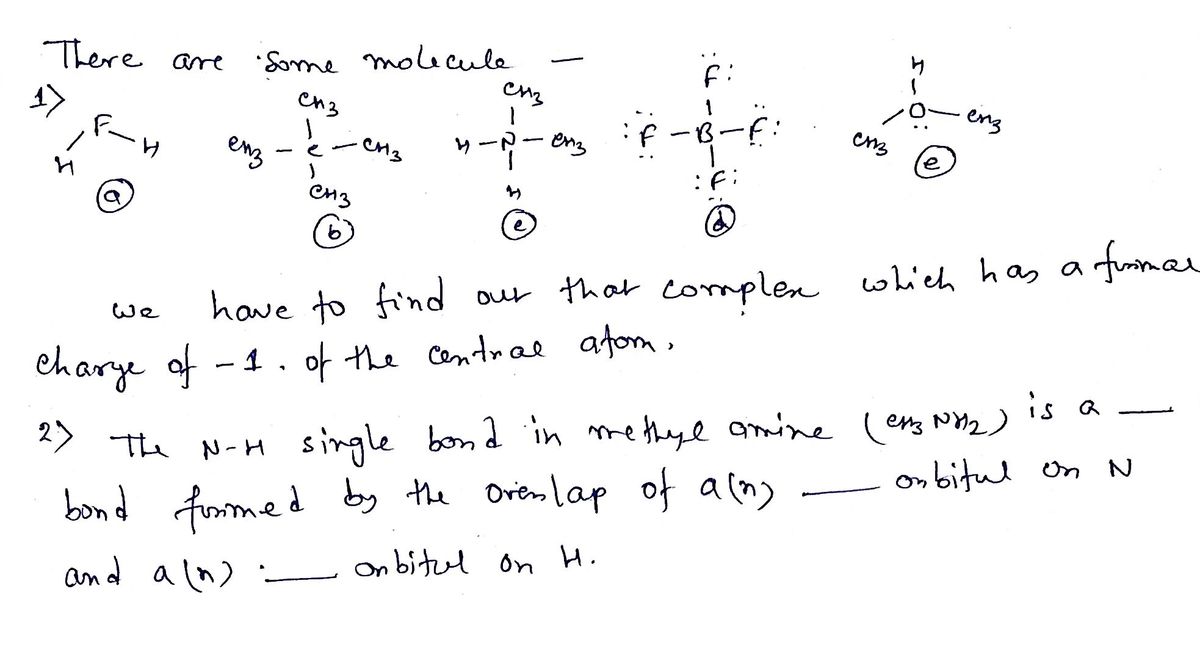 There are some molecule —
1>
F H H
(a)
CH3
CH3 - C - CH3
CH3
(b)
CH3
H - N - CH3
H
(c)
:F:
:F - B - F:
:F:
(d)
H
O - CH3
CH3
(e)
we have to find out that complex which has a formal
charge of -1. of the central atom.
2> The N-H single bond in methyl amine (CH3NH2) is a —
bond formed by the overlap of a(n) — orbital on N
and a(n) :— orbital on H.